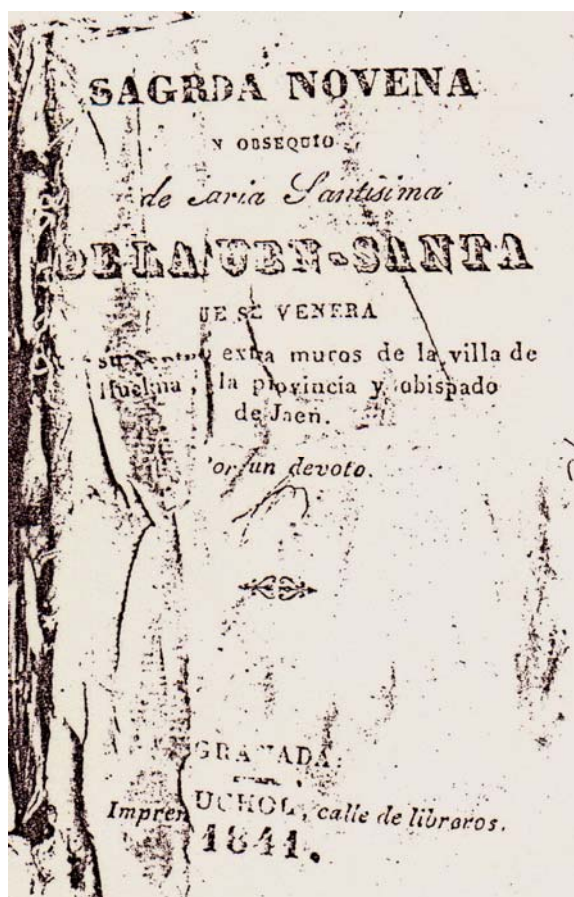 SAGRDA NOVENA
N OBSEQUIO
de aria Santisima
DE LA UEN-SANTA
UE SE VENERA
su extra muros de la villa de
Huelma, la provincia y obispado
de Jaen.
or un devoto.
GRANADA:
Impren UCHOL, calle de libreros.
1841.